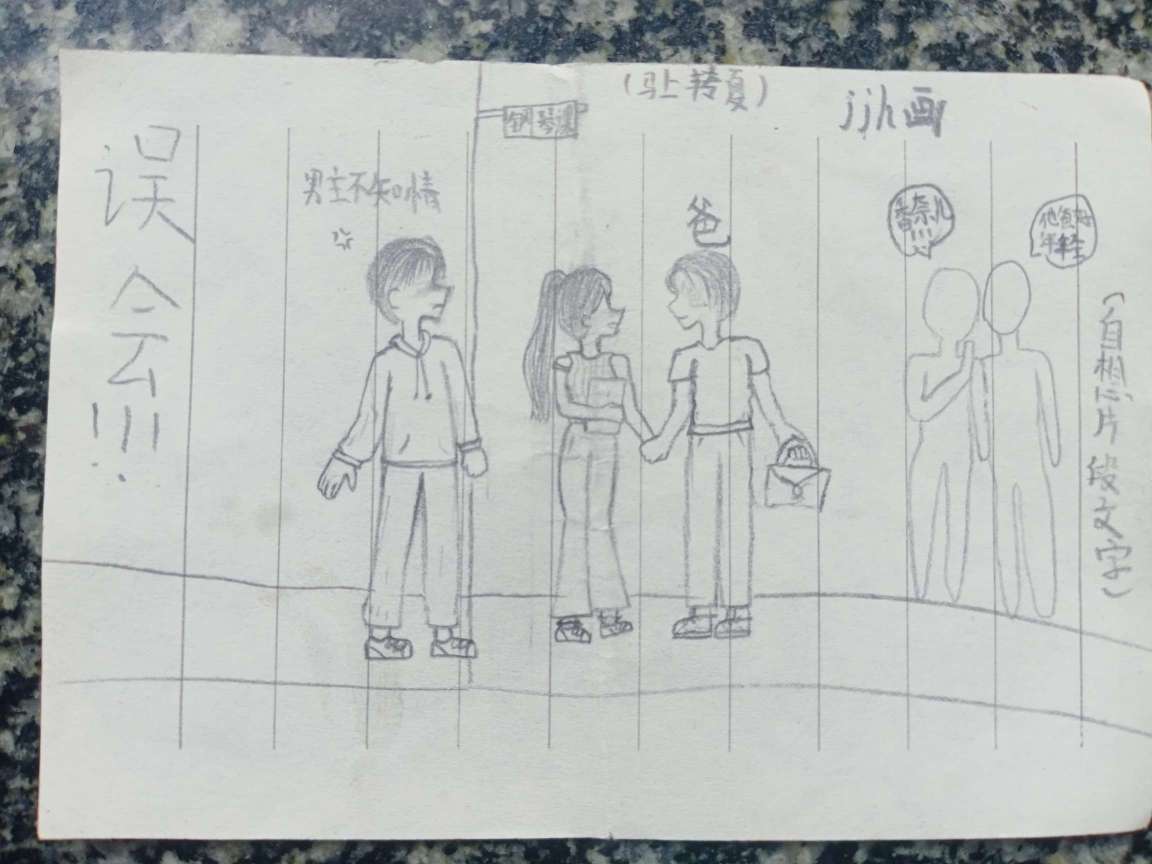 误会!!!
男主不知情
钢琴课
(马上转夏)
jjh画
爸
香奈儿
!!!
他爸好
年轻
(自想片段文字)